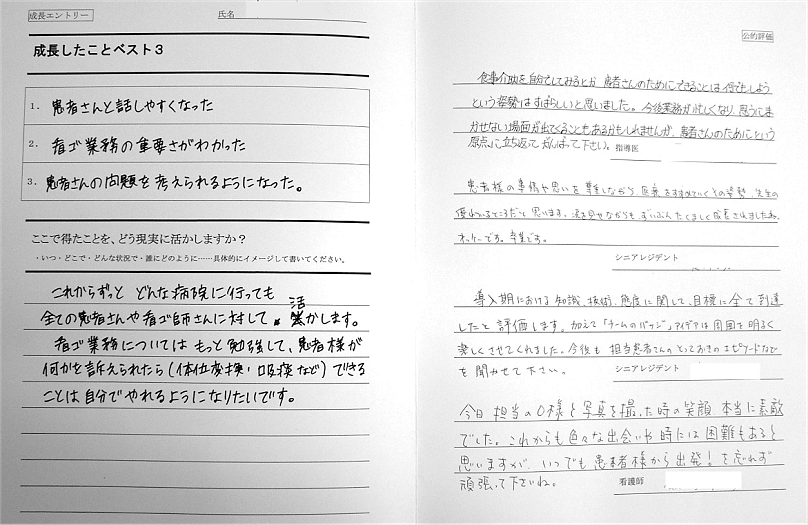 成長エントリー
氏名
成長したことベスト3
1. 患者さんと話しやすくなった
2. 看ゴ業務の重要さがわかった
3. 患者さんの問題を考えられるようになった。
ここで得たことを、どう現実に活かしますか？
・いつ・どこで・どんな状況で・誰にどのように……具体的にイメージして書いてください。
これからずっと どんな病院に行っても
活
全ての患者さんや看ゴ師さんに対して かします。
看ゴ業務については もっと勉強して、患者様が
何かを訴えられたら(体位変換・口吸痰など)できる
ことは自分でやれるようになりたいです。
公的評価
食事介助を自分でしてみるとか、患者さんのためにできることは何でもしよう
という姿勢はすばらしいと思いました。今後業務が忙しくなり、思うにま
かせない場面が出てくることもあるかもしれませんが、患者さんのためにという
原点に立ち返って がんばって下さい。
指導医
患者様の事情や思いを尊重しながら、医療をすすめていく の姿勢、先生の
優れているところだと思います。涙を見せながらも、ずいぶん たくましく成長されましたね。
オッケーです。卒業です。
シニアレジデント
導入期における知識、技術、態度に関して、目標に全て到達
したと評価します。加えて「チームのバッジ」アイデアは周囲を明るく
楽しくさせてくれました。今後も 担当患者さんのとっておきのエピソードなど
を聞かせて下さい。
シニアレジデント
今日 担当のO様と写真を撮った時の笑顔 本当に素敵
でした。これからも色々な出会いや時には困難もあると
思いますが、いつでも患者様から出発！を忘れず
頑張って下さいね。
看護師